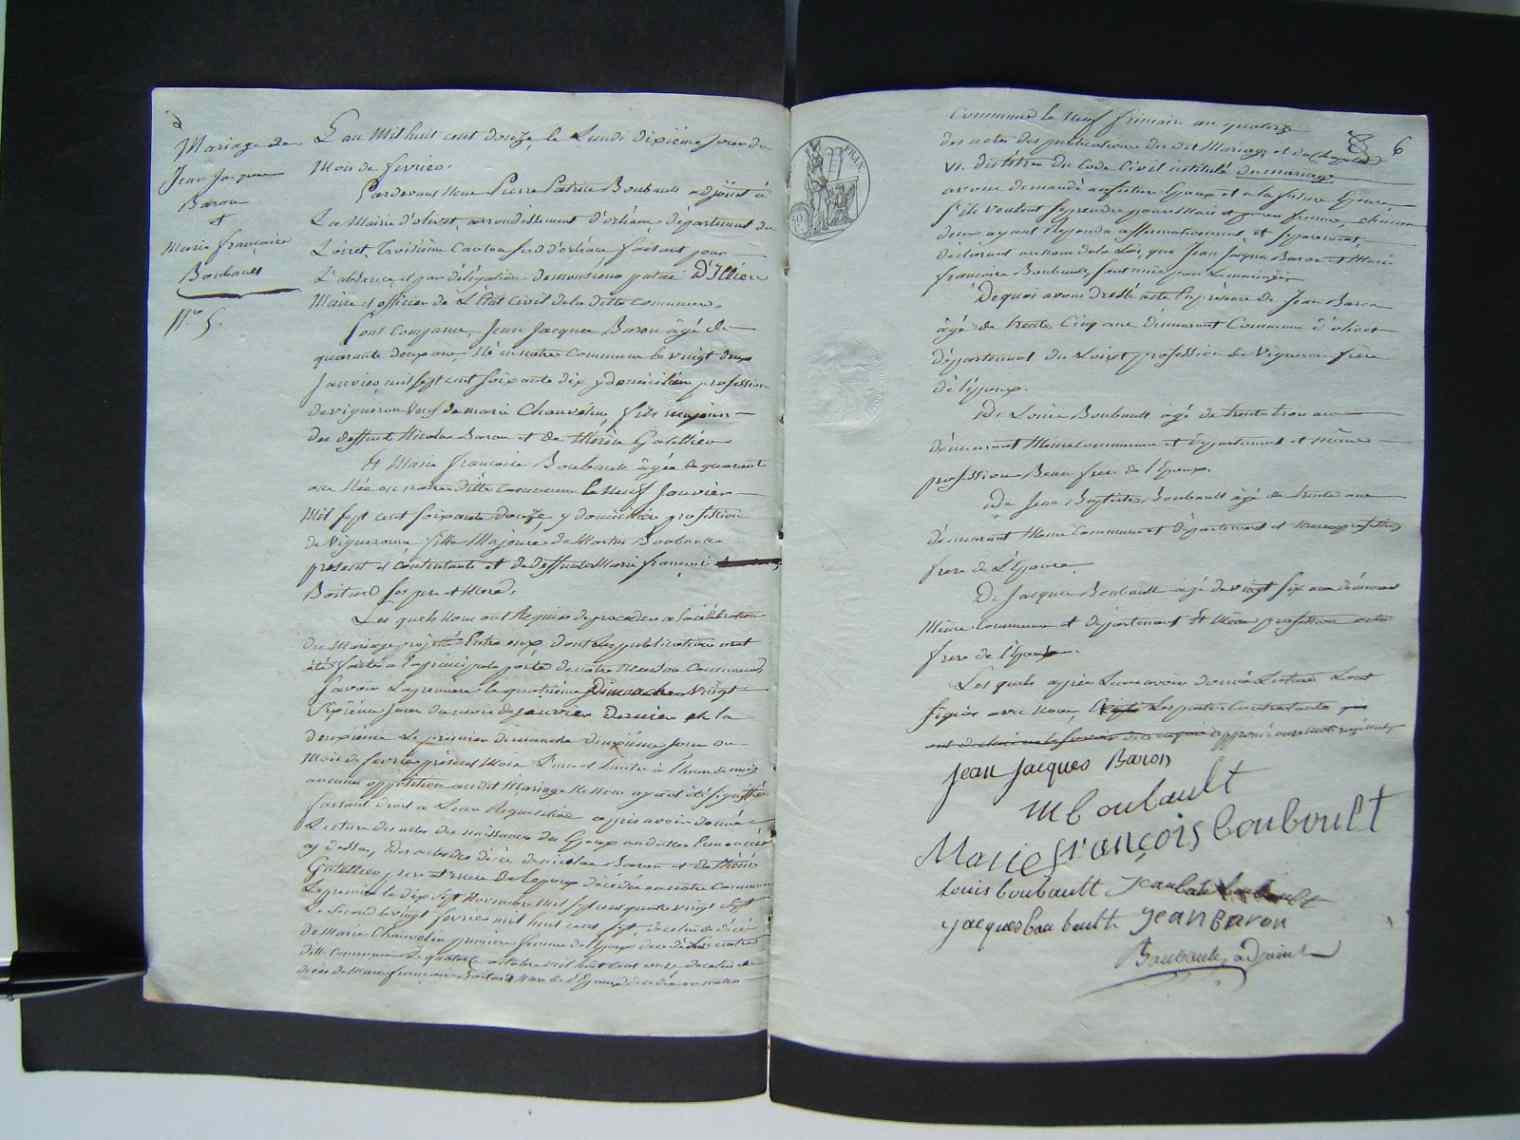 Mariage de
Jean Jacques
Baron
et
Marie françoise
Boubault
N.ro 5.
L'an Mil huit cent douze le Lundi dixième jour du
Mois de fevrier.
Pardevant Nous Pierre Patrice Boubault adjoint à
La Mairie d'olivet, arrondissement d'orléans, département du
Loiret, Troisième Canton sud d'orléans faisant pour
L'absence et par délégation de monsieur D'Illiers
Maire et officier de L'Etat Civil de la ditte Commune.
Sont Comparus, Jean Jacques Baron âgé de
quarante deux ans Né en notre Commune le vingt deux
Janvier mil sept cent soixante dix y domicilié profession
de vigneron Veuf de marie Chauvelin, fils majeur
des deffunts Nicolas Baron et de thérèse Gatellier
Et Marie françoise Boubault âgée de quarante
ans Née en notre ditte Commune le Neuf Janvier
Mil sept cent soixante douze, y domiciliée profession
de vigneronne fille Majeure de Martin Boubault
présent et Consentant et de deffunte Marie françoise
Boitard ses père et Mere.
Les quels Nous ont Requis de proceder a la célébration
du Mariage projetté Entre eux dont les publications ont
été faites a la principale porte de notre Maison Commune,
savoir La premiere le quatrième Dimanche vingt
Sixième jour du mois de janvier dernier et la
deuxième Le premier dimanche deuxième jour du
Mois de fevrier présent Mois à l'heure de midi
aucune opposition au dit Mariage Ne Nous ayant été signiffiée
faisant droit a Leur Requisition après avoir donné
Lecture des actes de Naissance des Epoux
des actes de décès de nicolas Baron et de thérèse
Gatellier père et mere de l'epoux décédés en notre Commune
Le premier le dix sept Novembre Mil sept cent quatre vingt sept
Le second le vingt fevrier mil huit cent sept, de celui de décès
de Marie Chauvelin premiere femme de l'epoux décédée en notre
ditte Commune le quatorze octobre mil huit cent onze de celui de
décès de Marie françoise Boitard Mere de l'Epouse décédée en notre
6
Commune le Neuf frimaire an quatorze
des actes des publications du dit Mariage et du Chapitre
VI. du titre du Code Civil intitulé du mariage
avons demandé au futur Epoux et a la future Epouse,
s'ils veulent se prendre pour Mari et pour femme, chacun
deux ayant repondu affirmativement et séparément,
déclarons au nom de la Loi, que Jean Jacques Baron et Marie
françoise Boubault, sont unis par Le mariage
De quoi avons dressé acte En présence de Jean Baron
âgé de trente Cinq ans demeurant Commune d'olivet
département du Loiret profession de Vigneron frère
de l'époux.
De Louis Boubault âgé de trente trois ans
demeurant Même commune et département et même
profession Beau frere de l'Epoux.
De Jean Baptiste Boubault âgé de trente ans
demeurant Même Commune et département et même profession
frere de L'Epouse.
De Jacques Boubault âgé de vingt six ans demeurant
Même commune et département Et Même profession
frere de l'Epouse.
Les quels après Leur avoir donné Lecture Sont
signés avec nous, Les parties Contractantes
Jean Jacques Baron
M boubault
Marie françois bouboult
Louis boubault
Jacques bou bault Jean Baron
Boubault, adjoint